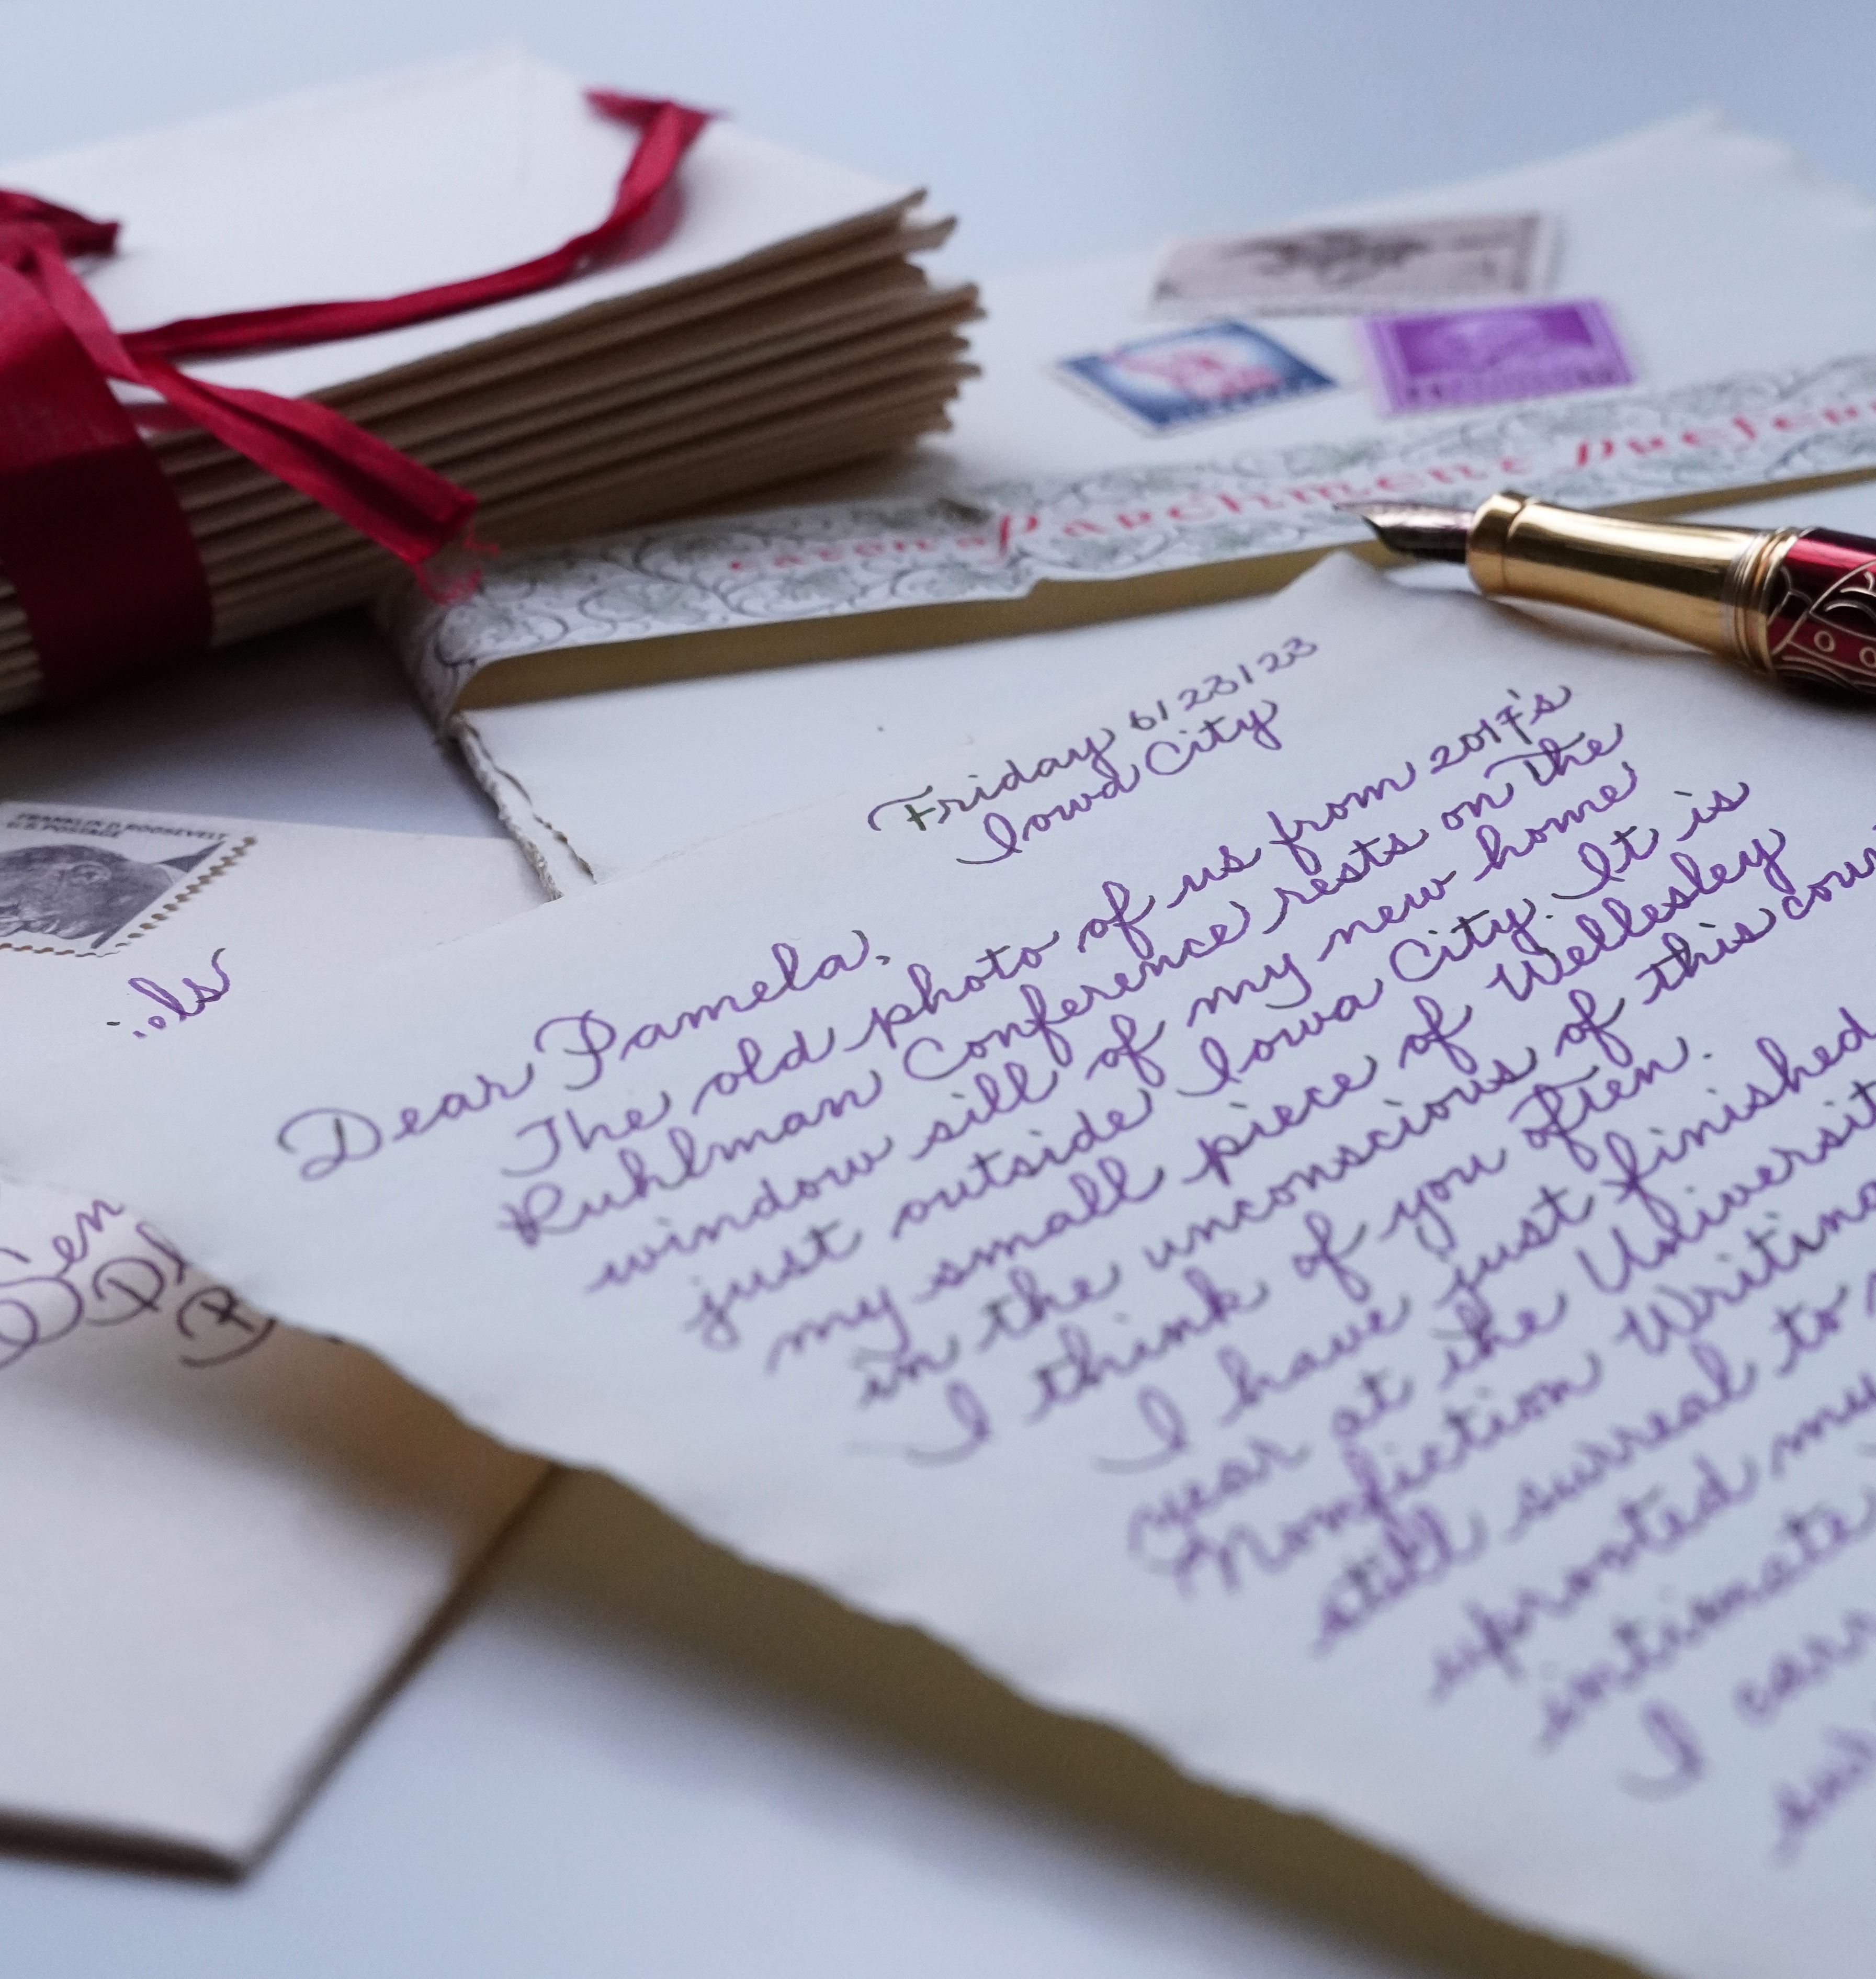 FRANKLIN D. ROOSEVELT
U.S. POSTAGE
Parchment
Friday 6/23/23
Iowa City
Dear Pamela,
The old photo of us from 2017's
Ruhlman Conference rests on the
window sill of my new home
just outside Iowa City. It is
my small piece of Wellesley
in the unconscious of this
I think of you often.
I have just finished
year at the
Nonfiction Writing
still surreal to
uprooted
intimate
I